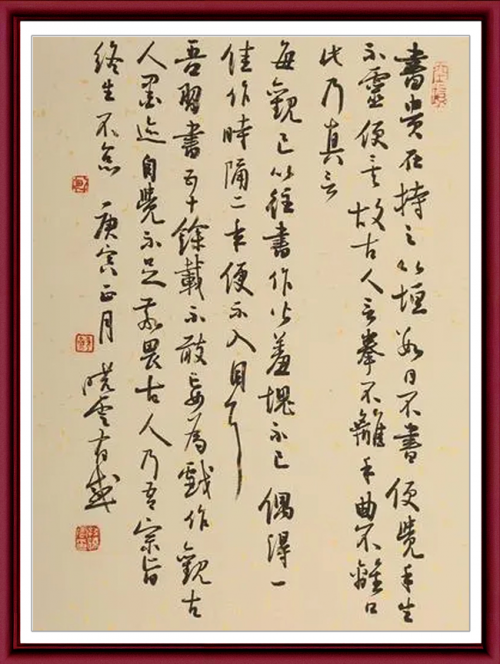 書貴在持之以恒數日不書便覺手生
不靈便故古人言拳不離手曲不離口
此乃真言
每觀己以往書作必羞愧不已偶得一
佳作時隔二年便不入目了
吾習書五十餘載不敢妄為戲作觀古
人墨迹自覺不足敬畏古人乃吾宗旨
終生不怠 庚寅正月 曉雲有感